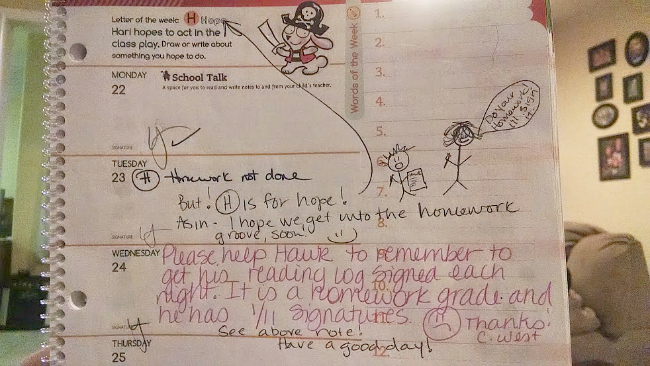 Letter of the week: H Hope
Hari hopes to act in the
class play. Draw or write about
something you hope to do.
Words of the Week
1.
2.
3.
4.
5.
MONDAY
22
School Talk
A space for you to read and write notes to and from your child's teacher.
SIGNATURE
Do your
Homework
I'll sign
it.
TUESDAY
23 H Homework not done
But! H is for hope!
As in - I hope we get into the homework
groove, soon!
8.
SIGNATURE
WEDNESDAY
24
Please help Hawk to remember to
get his reading log signed each
night. It is a homework grade and
he has 1/11 signatures. Thanks!
C. West
10.
11.
SIGNATURE
See above note!
Have a good day!
12.
THURSDAY
25